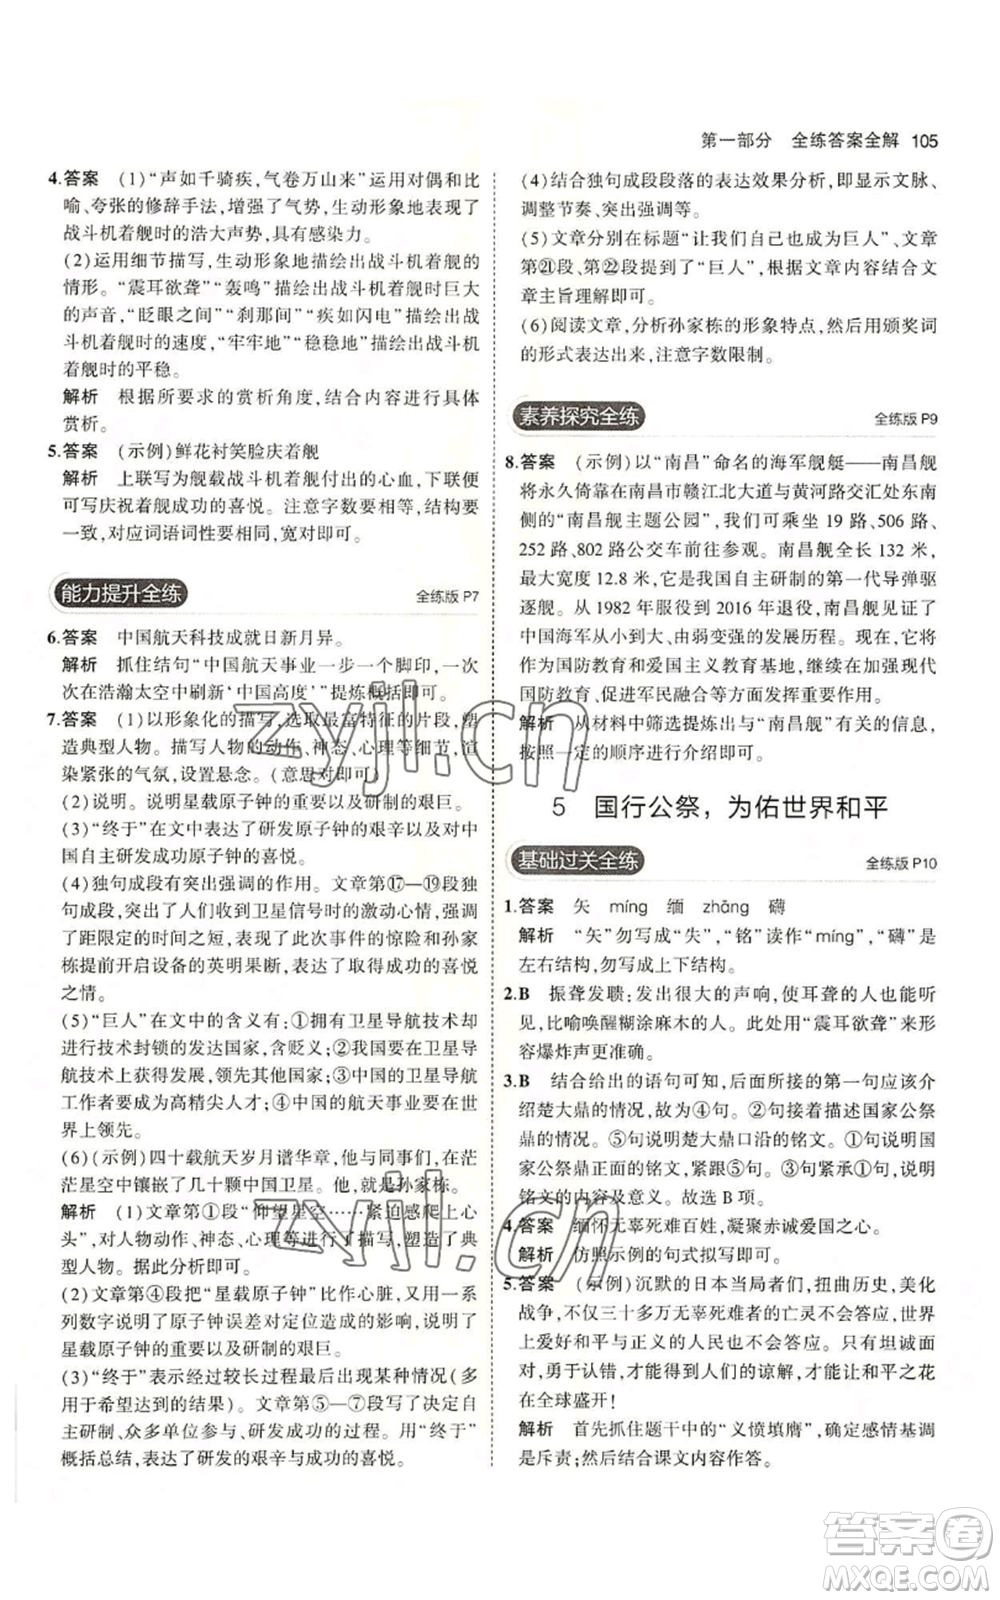 第一部分 全练答案全解 105
4.答案 (1)“声如千骑疾,气卷万山来”运用对偶和比
喻、夸张的修辞手法,增强了气势,生动形象地表现了
战斗机着舰时的浩大声势,具有感染力。
(2)运用细节描写,生动形象地描绘出战斗机着舰的
情形。“震耳欲聋”“轰鸣”描绘出战斗机着舰时巨大
的声音,“眨眼之间”“刹那间”“疾如闪电”描绘出战
斗机着舰时的速度,“牢牢地”“稳稳地”描绘出战斗机
着舰时的平稳。
解析 根据所要求的赏析角度,结合内容进行具体
赏析。
5.答案 (示例)鲜花衬笑脸庆着舰
解析 上联写为舰载战斗机着舰付出的心血,下联便
可写庆祝着舰成功的喜悦。注意字数要相等,结构要
一致,对应词语词性要相同,宽对即可。
能力提升全练 全练版 P7
6.答案 中国航天科技成就日新月异。
解析 抓住结句“中国航天事业一步一个脚印,一次
次在浩瀚太空中刷新‘中国高度’”提炼概括即可。
7.答案 (1)以形象化的描写,选取最富特征的片段,塑
造典型人物。描写人物的动作、神态、心理等细节,渲
染紧张的气氛,设置悬念。(意思对即可)
(2)说明。说明星载原子钟的重要以及研制的艰巨。
(3)“终于”在文中表达了研发原子钟的艰辛以及对中
国自主研发成功原子钟的喜悦。
(4)独句成段有强调的作用。文章第⑰—⑲段独
句成段,突出了人们收到卫星信号时的激动心情,强调
了距限定的时间之短,表现了此次事件的惊险和孙家
栋提前开启设备的英明果断,表达了取得成功的喜悦
之情。
(5)“巨人”在文中的含义有:①拥有卫星导航技术却
进行技术封锁的发达国家,含贬义;②我国在卫星导
航技术方面的崛起和突破;③中国的卫星导航技术
高端,已经成为高精尖人才;④中国的航天事业在世
界上领先。
(6)(示例)四十载航天岁月谱华章,于无声处,在茫
茫星空中镶嵌了几十颗中国卫星。他,就是孙家栋。
解析 (1)文章第①段“仰望星空……紧迫感爬上心
头”,对人物动作、神态、心理等进行了描写,塑造了典
型人物。据此分析即可。
(2)文章第④段把“星载原子钟”比作心脏,又用一系
列数字说明了原子钟误差对定位造成的影响,突出了
星载原子钟的重要以及研制的艰巨。
(3)“终于”表示经过较长过程最后出现某种情况(多
用于希望达到的结果)。文章第⑤—⑦段写了我国
自主研制、众多单位参与、研发成功的过程,用“终于”
概括总结,表达了研发的艰辛与成功的喜悦。
(4)结合独句成段段落的表达效果分析,即显示文脉、
调整节奏、突出强调等。
(5)文章分别在标题“让我们自己也成为巨人”、文章
第㉑段、第㉒段提到了“巨人”,根据文章内容结合文
章主旨理解即可。
(6)阅读文章,分析孙家栋的形象特点,然后用颁奖词
的形式表达出来,注意字数限制。
素养探究全练 全练版 P9
8.答案 (示例)以“南昌”命名的海军舰艇——南昌舰
将永久倚靠在南昌市赣江北大道与黄河路交汇处东南
侧的“南昌舰主题公园”,我们可乘坐 19 路、506 路、
252 路、802 路公交车前往参观。南昌舰全长 132 米,
最大宽度 12.8 米,是我国自主研制的第一代导弹驱
逐舰。从 1982 年服役到 2016 年退役,南昌舰见证了
中国海军从小到大、由弱变强的发展历程。现在,它将
作为国防教育和爱国主义教育基地,继续在加强现代
国防教育、促进军民融合等方面发挥重要作用。
解析 从材料中筛选提炼出与“南昌舰”有关的信息,
按照一定的顺序进行介绍即可。
5 国行公祭,为佑世界和平
基础过关全练 全练版 P10
1.答案 矢 míng 缅 zhāng 礴
解析 “矢”勿写成“失”,“铭”读作“míng”,“礴”是
左右结构,勿写成上下结构。
2.B 振聋发聩:发出很大的声响,使耳聋的人也能听
见,比喻唤醒糊涂麻木的人。此处用“震耳欲聋”来形
容爆炸声更准确。
3.B 结合给出的语句可知,后面所接的第一句应该介
绍楚大鼎的情况,故为④句。②句接着描述国家公祭
鼎的情况。⑤句说明楚大鼎口沿的铭文。①句说明国
家公祭鼎正面的铭文,紧跟⑤句。③句总结,说明
铭文的内容及意义。故选 B 项。
4.答案 缅怀无辜死难百姓,凝聚赤诚爱国之心。
解析 仿照示例的句式拟写即可。
5.答案 (示例)沉默的日本当局者们,扭曲历史,美化
战争,不仅三十多万无辜死难者的亡灵不会答应,世界
上爱好和平与正义的人民也不会答应。只有坦诚面
对,勇于认错,才能得到人民的谅解,才能让和平之花
在全球盛开!
解析 首先抓住题干中的“义愤填膺”,确定感情基调
是斥责;然后结合课文内容作答。
zyjl.cn
zyjl.cn
答案圈
MXQE.COM